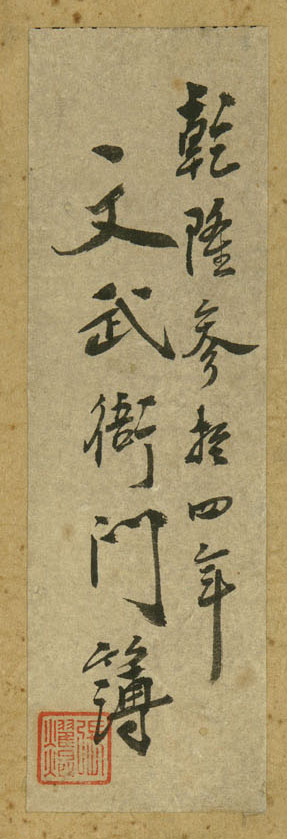 乾隆参拾四年
文武衙門簿